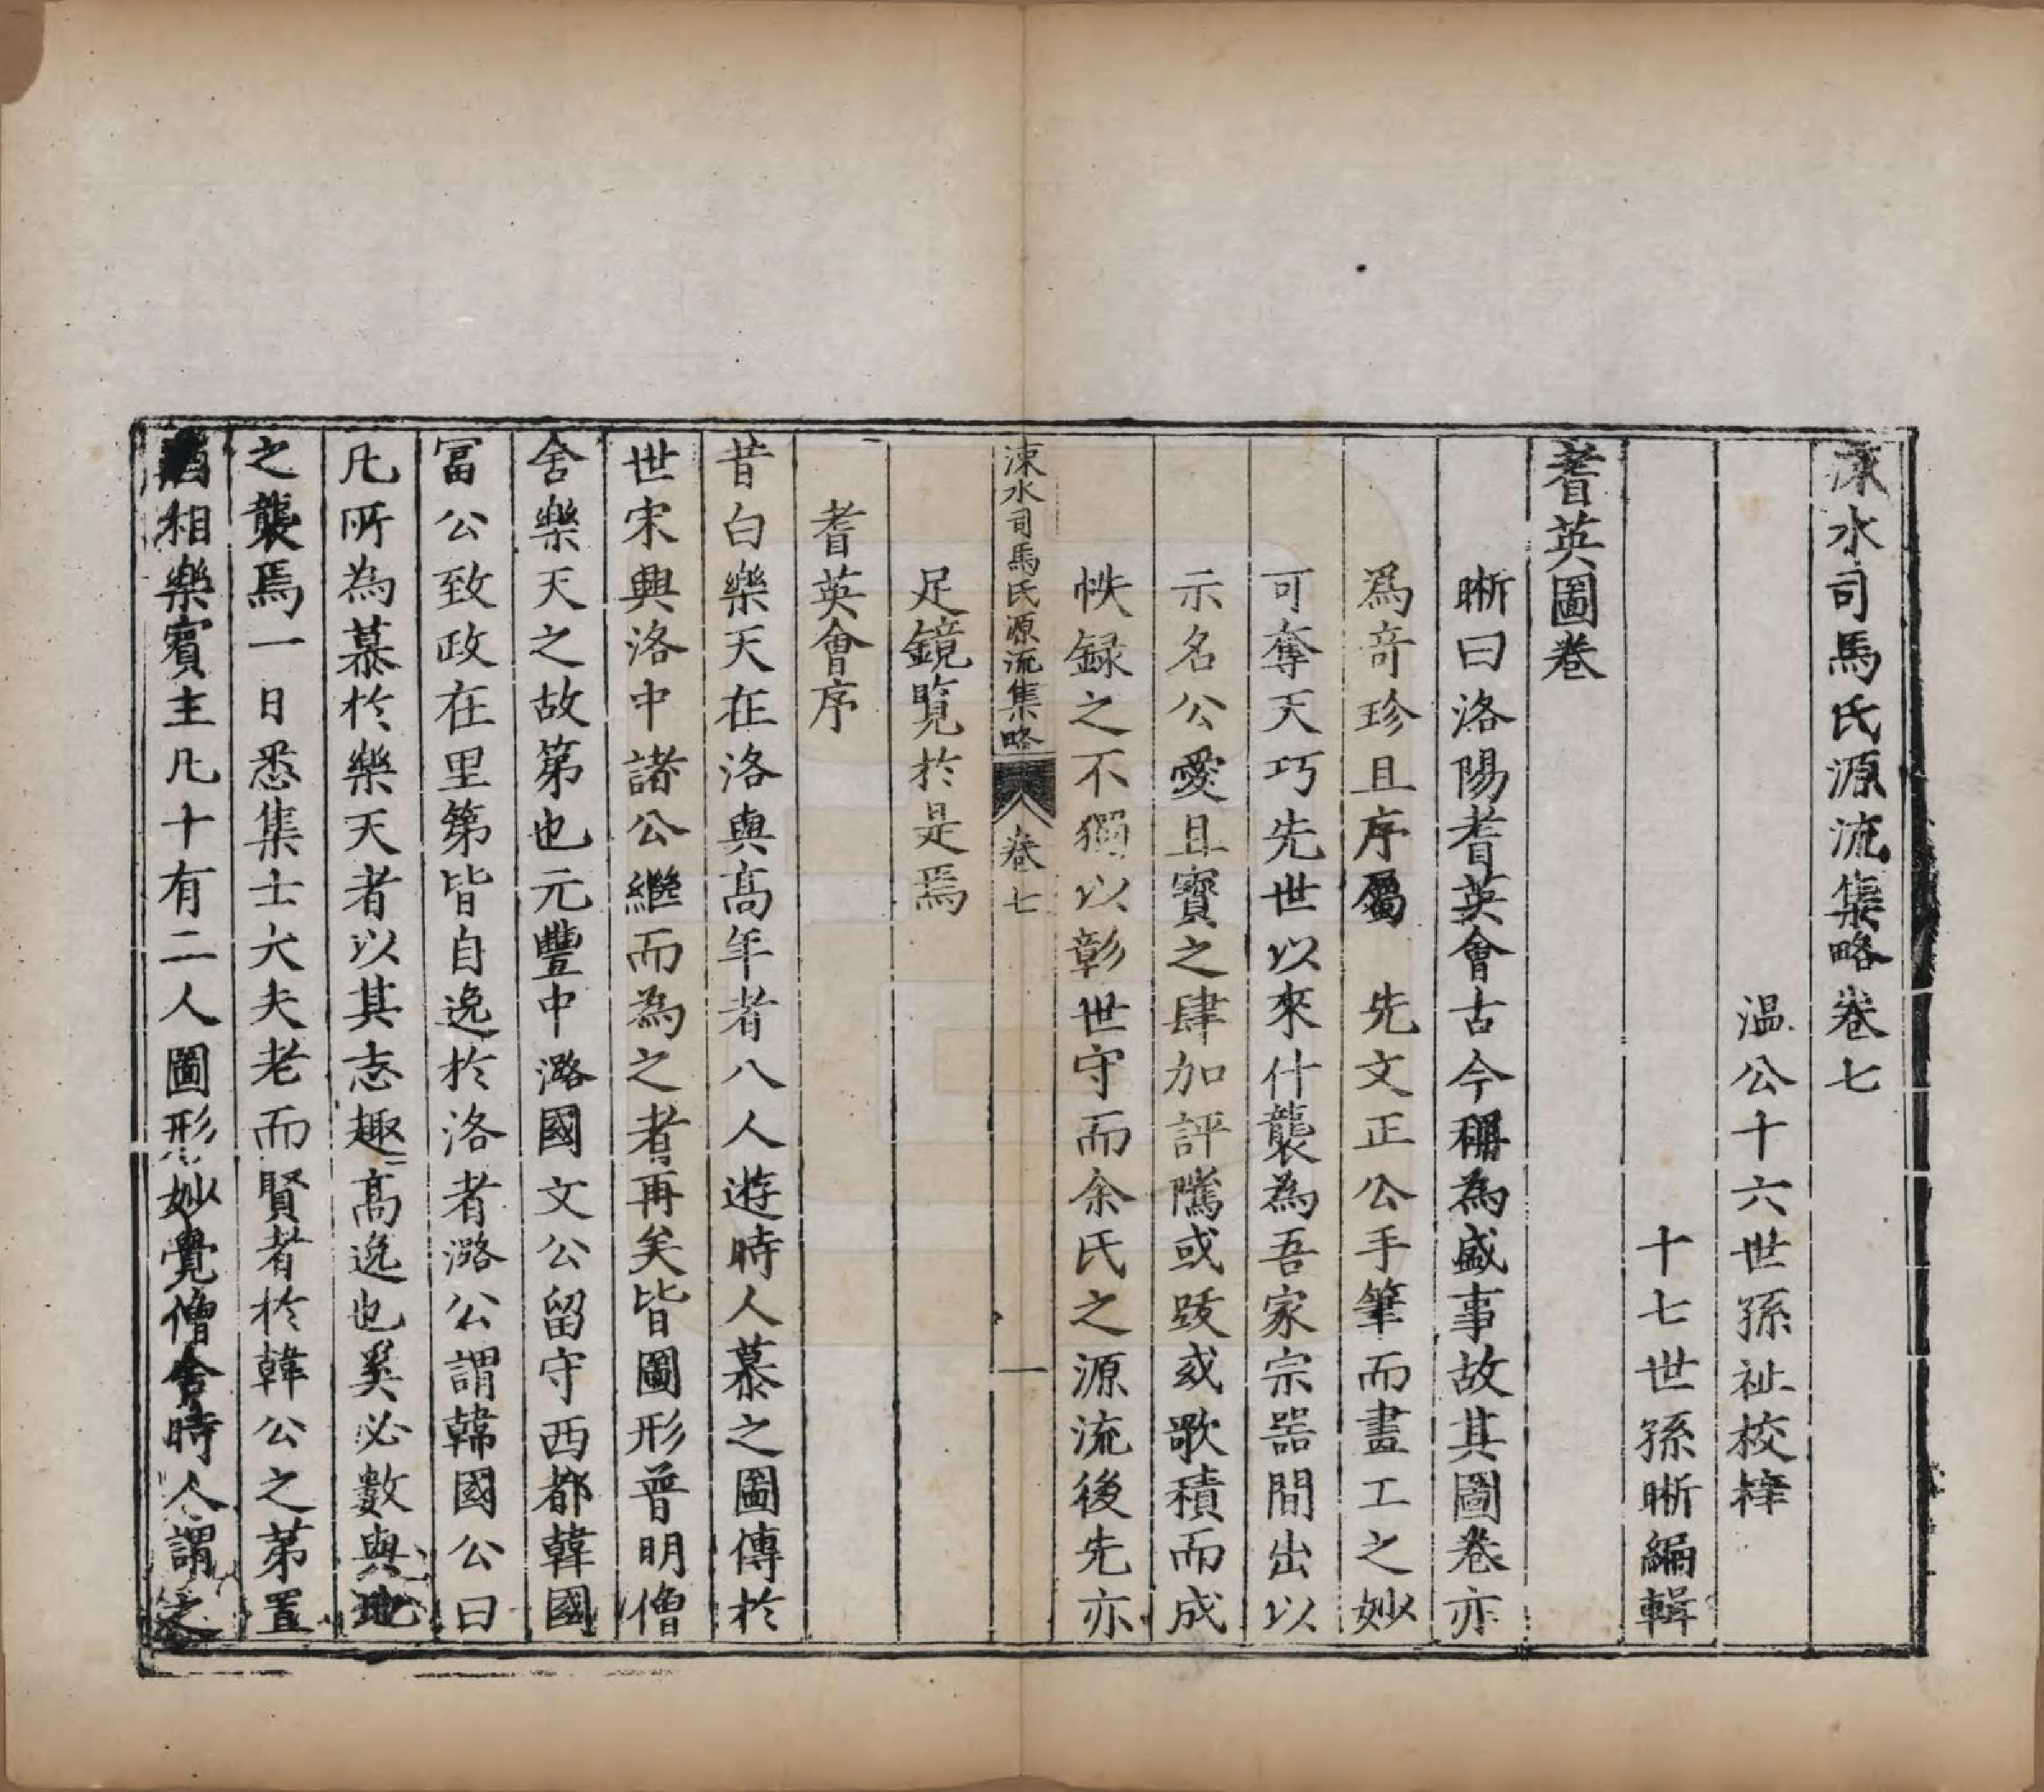 涑水司馬氏源流集略卷七
溫公十六世孫祉校梓
十七世孫晣編輯
耆英圖卷
晣曰洛陽耆英會古今稱為盛事故其圖卷亦
爲奇珍且序屬　先文正公手筆而畫工之妙
可奪天巧先世以來什襲為吾家宗器間出以
示名公愛且寶之肆加評隲或跋或歌積而成
帙録之不獨以彰世守而余氏之源流後先亦
涑水司馬氏源流集略　卷七　一
足鏡覧於是焉
耆英會序
昔白樂天在洛與高年者八人遊時人慕之圖傳於
世宋興洛中諸公繼而為之者再矣皆圖形普明僧
舍樂天之故第也元豐中潞國文公留守西都韓國
冨公致政在里第皆自逸於洛者潞公謂韓國公曰
凡所為慕於樂天者以其志趣高逸也奚必數與地
之襲焉一日悉集士大夫老而賢者於韓公之第置
酒相樂賓主凡十有二人圖形妙覺僧舍時人謂之